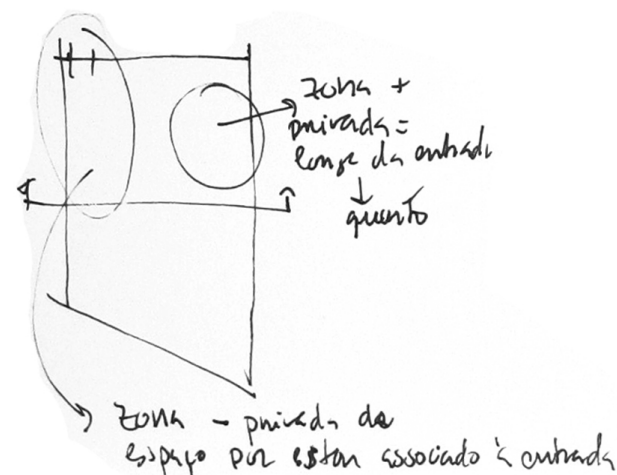 zona +
privada =
longe da entrada
quarto
zona - privada do
espaço por estar associado à entrada